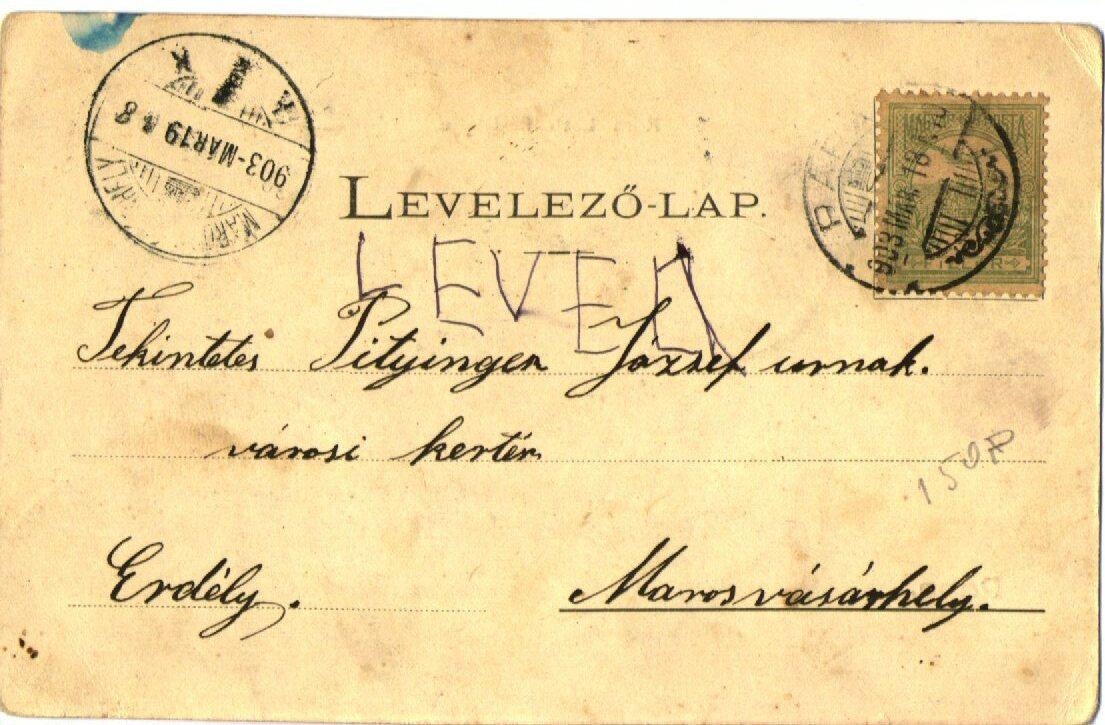 903-MÁR.19
LEVELEZŐ-LAP.
903 MÁR. 18
LEVEL
Tekintetes Pityinger József urnak.
városi kertér
150 Ft
Erdély.
Marosvásárhely.